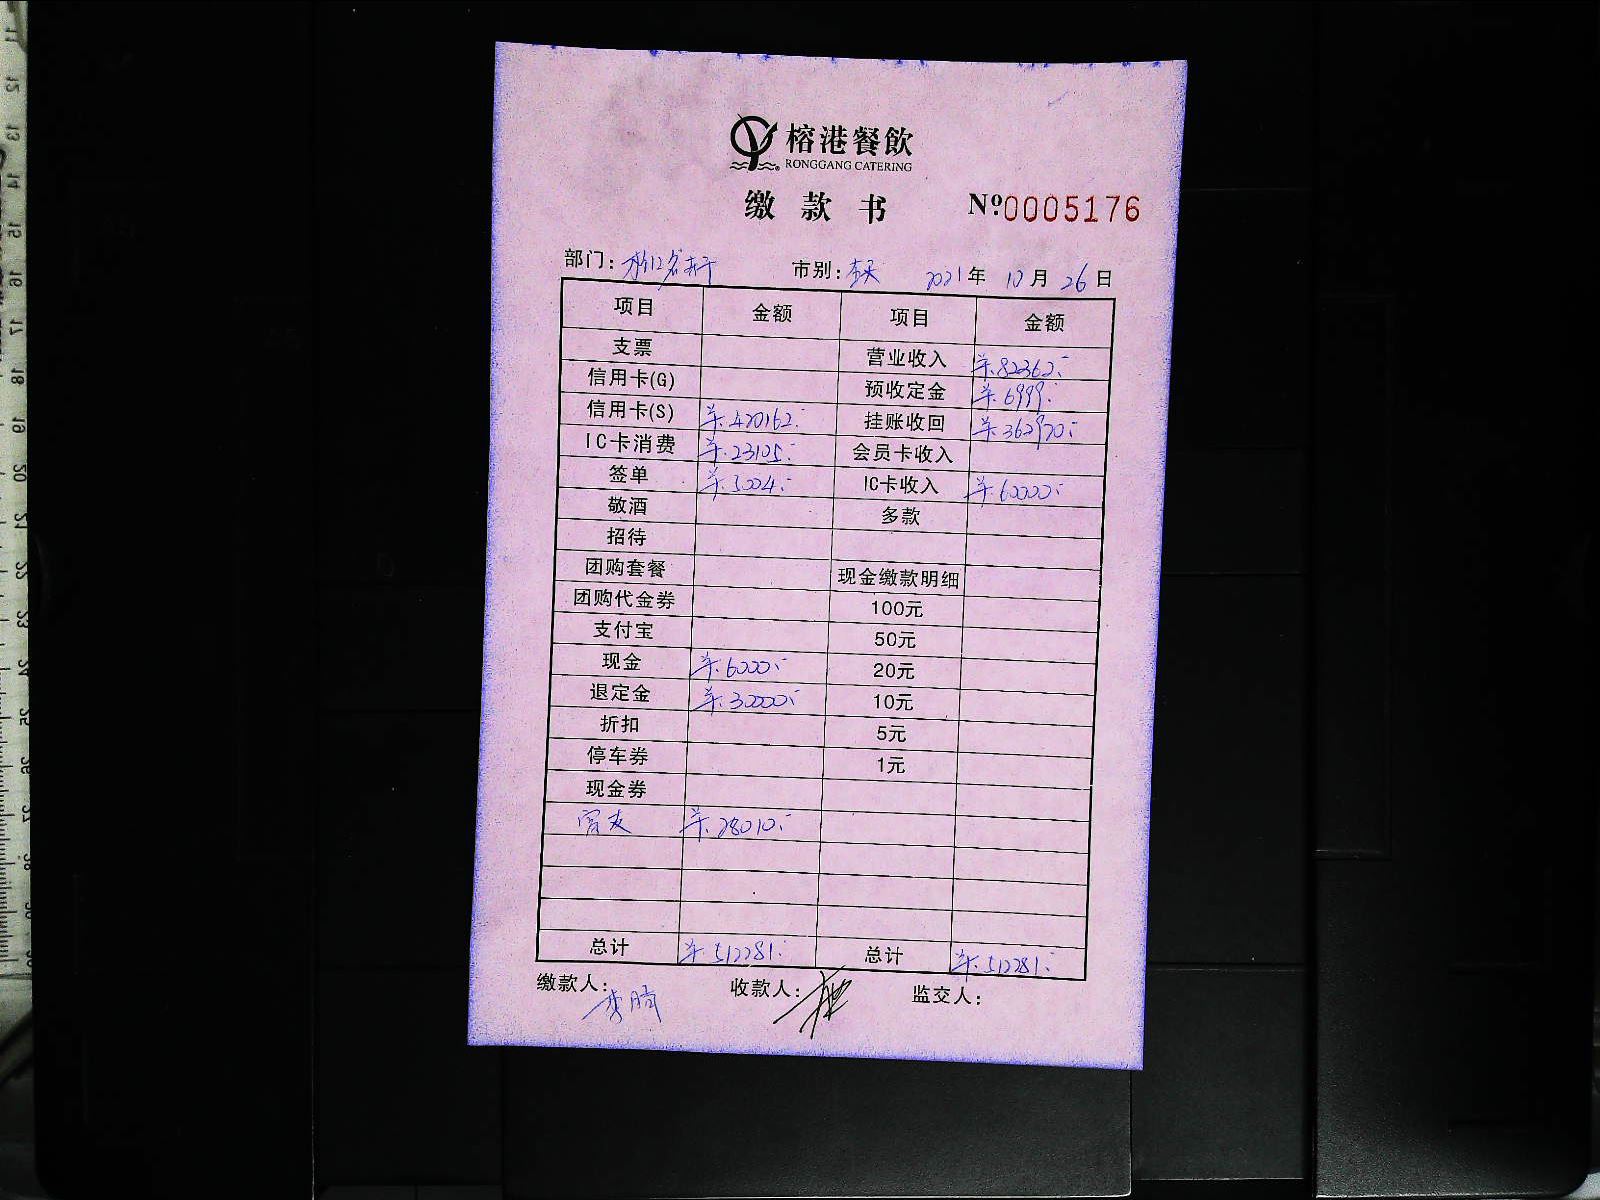 榕港餐飲
RONGGANG CATERING
缴款书 Nº.0005176
部门: 市别:全天 2021年10月26日
项目 金额 项目 金额
支票 营业收入 ¥.82362.-
信用卡(G) 预收定金 ¥.6999.-
信用卡(S) ¥.420162.- 挂账收回 ¥.362920.-
IC卡消费 ¥.23105.- 会员卡收入
签单 ¥.5004.- IC卡收入 ¥.60000.-
敬酒 多款
招待
团购套餐 现金缴款明细
团购代金券 100元
支付宝 50元
现金 ¥.6000.- 20元
退定金 ¥.30000.- 10元
折扣 5元
停车券 1元
现金券
¥.28010.-
总计 ¥.512281.- 总计 ¥.512281.-
缴款人: 收款人: 监交人: